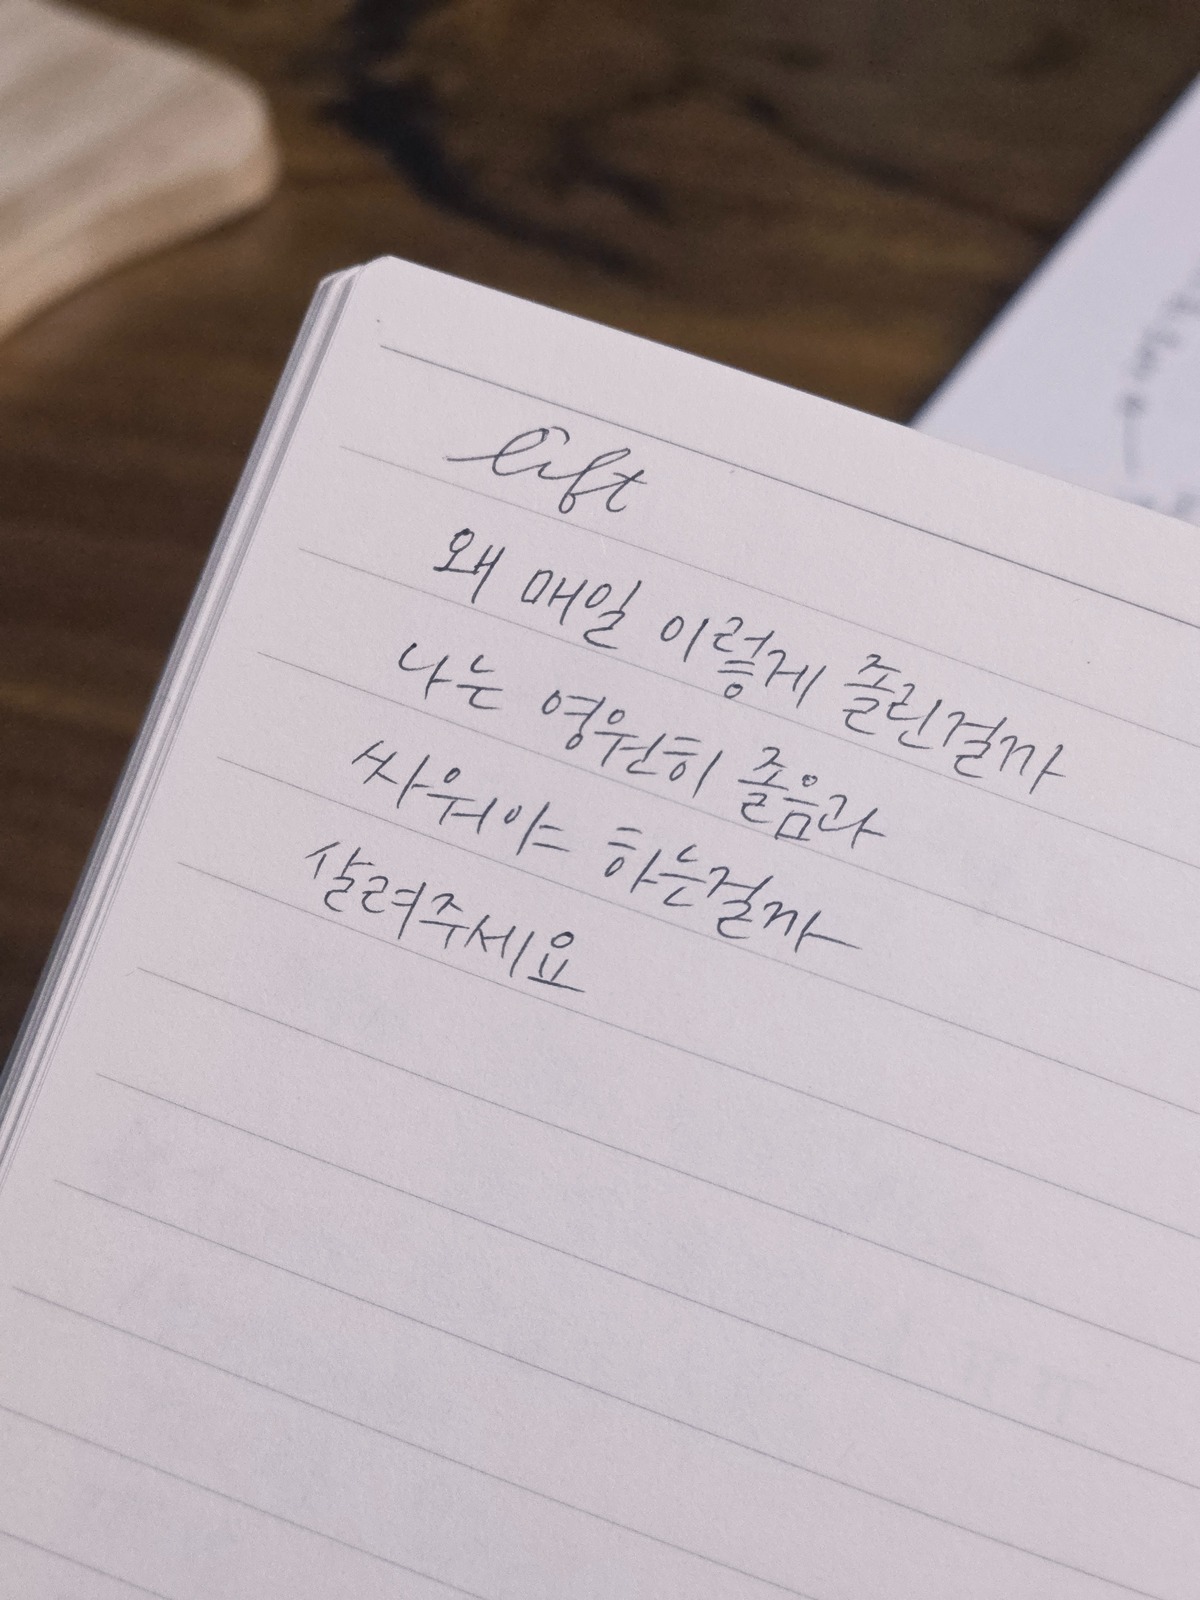 lift
왜 매일 이렇게 졸린걸까
나는 영원히 졸음과
싸워야 하는걸까
살려주세요